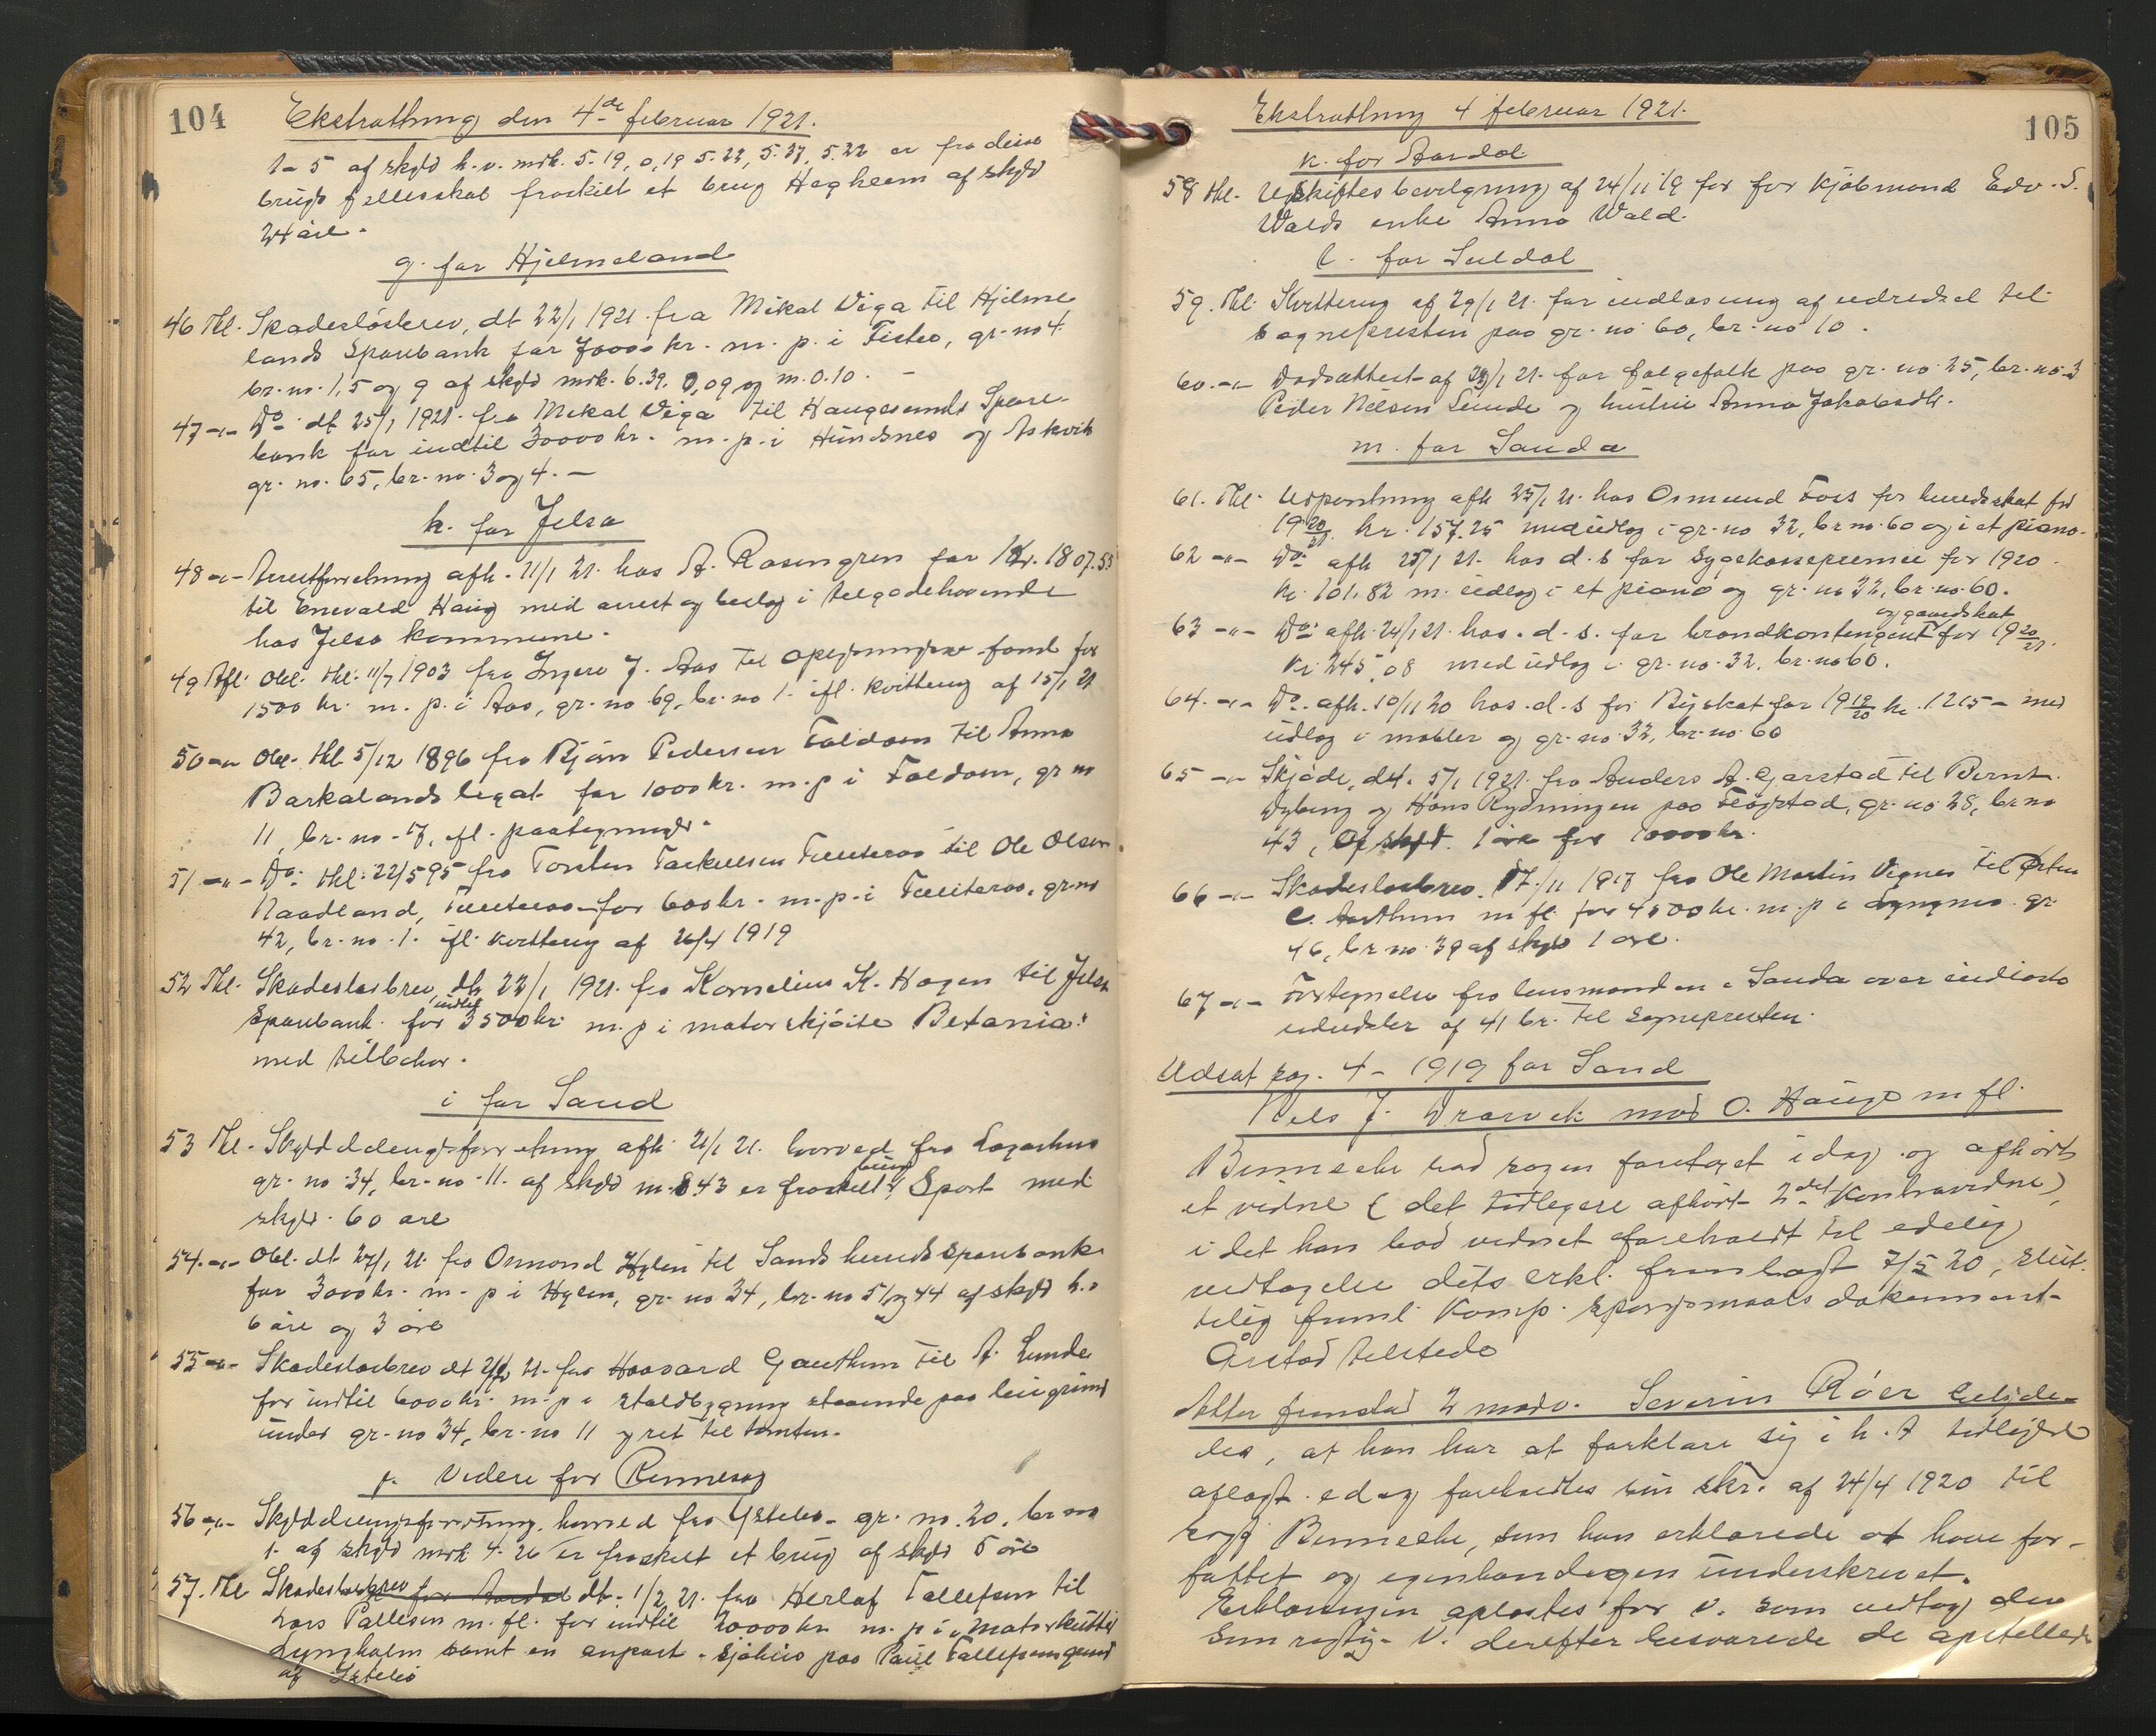 104
Ekstrathing den 4de februar 1921.
1-5 af skyld h.v. mrk. 5.19, 0,19 5.22, 5.37, 5.22 er fra disse
brugs fellesskab fraskilt et brug Hagheem af skyld
24 øre.
g. for Hjelmeland
46 Thl. Skadesløsbrev, dt 22/1 1921 fra Mikal Viga til Hjelme
lands Sparebank for 70000 kr. m. p. i Fister, gr. no 4
br. no. 1, 5 og 9 af skyld mrk. 6.39, 0,09 og m. 0.10. -
47 -"- Do dt 25/1 1921 fra Mikal Viga til Haugesunds Spare-
bank for indtil 30000 kr. m. p. i Hundsnes og Askvik
gr. no. 65, br. no. 3 og 4. -
h. for Jelsa
48 -"- Arrestforretning afh. 11/1 21. hos A. Rosengren for Kr. 1807.55
til Enevald Haug med arrest og beslag i tilgodehavende
hos Jelsa kommune.
49 Afl. Obl. thl. 11/7 1903 fra Ingere J. Aas til oplysningsv. fond for
1500 kr. m. p. i Aas, gr. no. 69, br. no 1. ifl. kvittering af 15/1 21
50 -"- Obl. thl 5/12 1896 fra Bjørn Pedersen Foldøen til Anna
Barkalands legat for 1000 kr. m. p i Foldøen, gr no
11, br. no. 17, ifl. paategninger.
51 -"- Do thl. 22/5 95 fra Torsten Torkelsen Tveiteraas til Ole Olsen
Naadland, Tveiteraas for 600 kr. m. p. i Tveiteraas, gr. no
42, br. no. 1. ifl. kvittering af 26/4 1919
52 Thl. Skadesløsbrev, dt 22/1 1921. fra Kornelius K. Hagen til Jelsa
Sparebank for indtil 3500 kr. m. p i motorskjøite "Betania"
med tilbehør.
i for Sand
53 Thl. Skylddelingsforretning afh. 21/1 21. hvorved fra Løgarhus
gr. no 34, br. no. 11. af skyld m. 8.43 er fraskilt brug Sport med
skyld. 60 øre
54 -"- Obl. dt 27/1 21. fra Osmond Hylen til Sands herreds sparebank
for 3000 kr. m. p i Hylen, gr. no 34, br. no 51 og 44 af skyld h.v
6 øre og 3 øre
55 -"- Skadesløsbrev dt 21. fra Haavard Gauthun til A. Lunde
for indtil 6000 kr. m. p i staldbygning staaende paa leiegrund
under gr. no 34, br. no 11 og ret til tomten.
f. Videre for Rennesøy
56 -"- Skylddelingsforretning hvorved fra Østebø gr. no. 20, br no
1. af skyld mrk 4.26 er fraskilt et brug af skyld 5 øre
57. Thl Skadesløsbrev for Aardal dt. 1/2 21. fra Herlof Tallefsen til
Lars Pallesen m. fl. for indtil 20000 kr m. p i "Motorkutter
Lyngholm samt en anpart i sjøhus paa Paul Tallefsens grund
af Østebø
Ekstrathing 4 februar 1921.
105
k. for Aardal
58 thl. Uskiftesbevilgning af 24/11 19 for for kjøbmand Edv. S.
Walds enke Anna Wald.
l. for Suldal
59. Thl. Kvittering af 29/1 21. for indløsning af udredsel til
sognepresten paa gr. no 60, br. no 10.
60. -"- Dødsattest af 29/1 21. for følgefolk paa gr. no 25, br. no. 3
Peder Nilsen Lunde og hustru Anna Jakobsdtr.
m. for Sauda
61. Thl. Udpantning afh 25/1 21. hos Osmund Foss for herredsskat for
1920/21 kr. 157.25 med udlæg i gr. no 32, br no. 60 og i et piano.
62 -"- Do afh 25/1 21. hos d. s for sygekassepremie for 1920
kr. 101.82 m. udlæg i et piano og gr. no 32, br. no. 60.
63 -"- Do afh. 24/1 21. hos. d. s. for brandkontingent og gaardskat for 1920/21.
Kr. 245.08 med udlæg i gr. no. 32, br. no 60.
64. -"- Do. afh. 10/11 20 hos. d. s for Byskat for 1919/20 kr. 1215 - med
udlæg i møbler og gr. no. 32, br. no. 60
65 -"- Skjøde, dt. 5/1 1921. fra Anders A. Gjarstad til Bernt
Dybing og Hans Rydningen paa Fløgstad, gr. no. 28, br no
43, af skyld. 1 øre for 10000 kr.
66 -"- Skadesløsbrev. 17/11 1917 fra Ole Martin Vignes til Østen
C. Aarthun m fl. for 4500 kr. m. p i gr
46, br no. 39 af skyld 1 øre.
67 -"- Fortegnelse fra lensmanden i Sauda over indløste
udredsler af 41 br. til Sognepresten.
Udsat sag. 4 - 1919 for Sand
Nels J. Drarvik mod O. Hauge m fl.
Benneche bad sagen foretaget idag og afhørt
et vidne (det tidligere afhørt 2det Kontravidne),
i det han bad vidnet foreholdt til edelig
vedtagelse dets erkl. fremlagt 7/5 20, slut-
telig freml. Komp. spørgsmaals dokument-
Årstad tilstede
Atter fremstod 2 modv. Severin Røer betyde-
des, at han har at forklare sig i h. t tidligere
aflagt ed og foreholdtes sin skr. af 24/4 1920 til
sagf Benneche, som han erklærede at have for-
fattet og egenhændigen underskrevet.
Erklæringen oplæstes for v. som vedtog den
som rigtig. V. derefter besvarede de opstillede